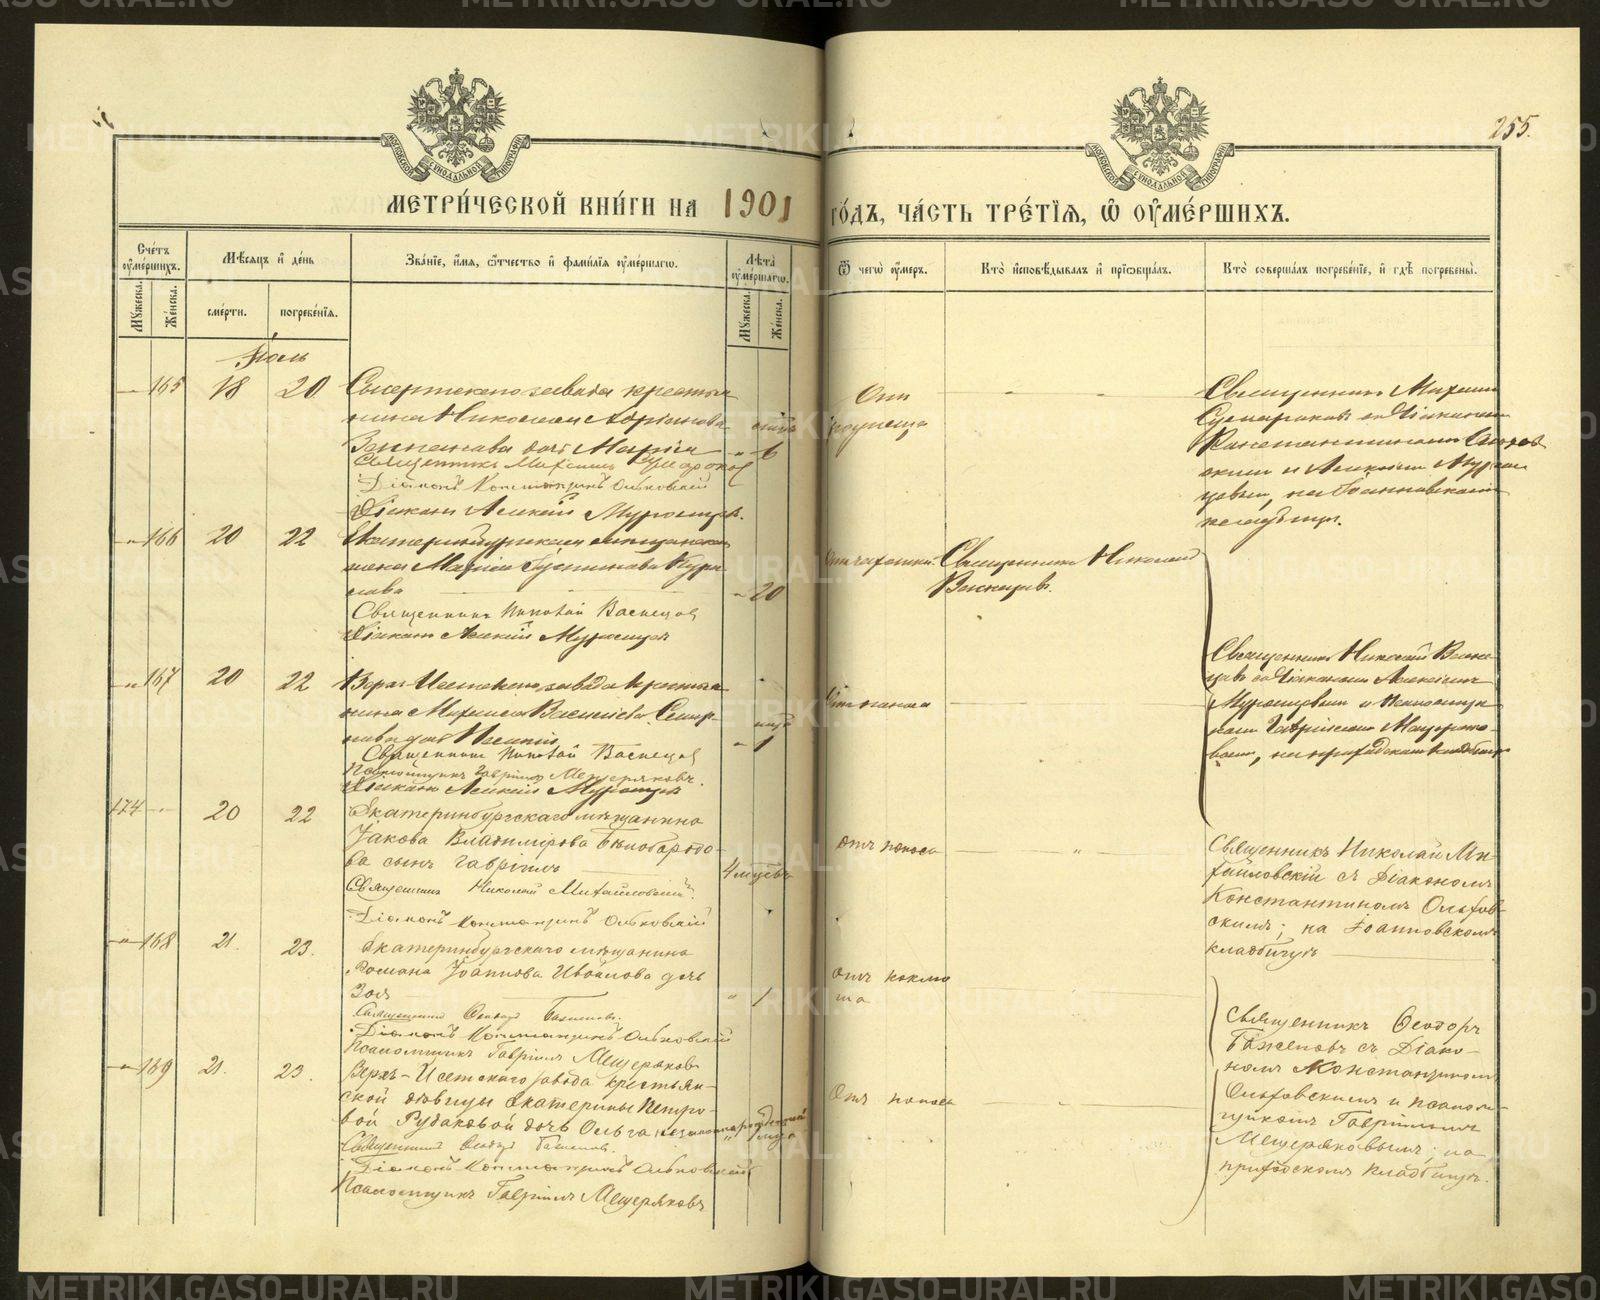 METRIKI.GASO-URAL.RU
255.
МОСКОВСКОЙ СѴНОДАЛЬНОЙ ТИПОГРАФІИ
МОСКОВСКОЙ СѴНОДАЛЬНОЙ ТИПОГРАФІИ
МЕТРИ́ЧЕСКОЙ КНИ́ГИ НА 1901 ГО́ДЪ, ЧА́СТЬ ТРЕ́ТІЯ, Ѽ ОУ҆МЕ́РШИХЪ.
Сче́тъ оу҆ме́ршихъ.
Мꙋ́жеска.
Же́нска.
Мѣ́сяцъ и҆ де́нь
сме́рти.
погребе́нїя.
Зва́нїе, и҆́мя, ѻ҆́тчество и҆ фами́лїя оу҆ме́ршагѡ.
Лѣ́та оу҆ме́ршагѡ.
Мꙋ́жеска.
Же́нска.
Ѿ чегѡ̀ оу҆́меръ.
Кто̀ и҆сповѣ́дывалъ и҆ прїѡбща́лъ.
Кто̀ соверша́лъ погребе́нїе, и҆ гдѣ̀ погребены̀.
Іюль
165 18 20
нина Николая
дочь Марія 6
Священникъ Михаилъ
Діаконъ Константинъ Ольховскій
Діаконъ Алексій Муромцевъ.
Отъ
Священникъ Михаилъ
съ Діаконами
Константиномъ Ольхов-
скимъ и Алексіемъ Муром-
цевымъ, на Іоанновскомъ
кладбищѣ.
166 20 22 Екатеринбургская мѣщанская
Марія
20
Священникъ Николай Васнецовъ
Діаконъ Алексій Муромцевъ
Священникъ Николай
Васнецовъ.
167 20 22 Верхъ-Исетскаго завода крестья-
нина Михаила Васильева
дочь
1
Священникъ Николай Васнецовъ
Псаломщикъ Гавріилъ Мещеряковъ.
Діаконъ Алексій Муромцевъ
Отъ поноса
Священникъ Николай Васне-
цовъ съ Діакономъ Алексіемъ
Муромцевымъ и псаломщи-
комъ Гавріиломъ Мещеряко-
вымъ, на приходскомъ кладбищѣ
174 20 22 Екатеринбургскаго мѣщанина
Іакова Владимірова Бѣлобородо-
ва сынъ Гавріилъ
4 мцевъ
Священникъ Николай Михайловскій.
Діаконъ Константинъ Ольховскій
отъ поноса
Священникъ Николай Ми-
хайловскій съ Діакономъ
Константиномъ Ольхов-
скимъ; на Іоанновскомъ
кладбищѣ
168 21. 23. Екатеринбургскаго мѣщанина
Романа Іоаннова Ивойлова дочь
Зоя 1
Священникъ Ѳеодоръ Баженовъ.
Діаконъ Константинъ Ольховскій
Псаломщикъ Гавріилъ Мещеряковъ
отъ коклю-
ша
Священникъ Ѳеодоръ
Баженовъ съ Діако-
номъ Константиномъ
Ольховскимъ и псалом-
щикомъ Гавріиломъ
Мещеряковымъ; на
приходскомъ кладбищѣ.
169 21. 23. Верхъ-Исетскаго завода крестьян-
ской дѣвицы Екатерины Петро-
вой Рудаковой дочь Ольга незаконнорожденная
Священникъ Ѳеодоръ Баженовъ.
Діаконъ Константинъ Ольховскій
Псаломщикъ Гавріилъ Мещеряковъ
Отъ поноса